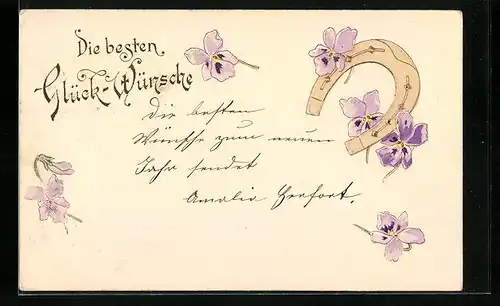 Die besten
Glück-Wünsche
Die besten
Wünsche zum neuen
Jahr sendet
Amalie Herfort.